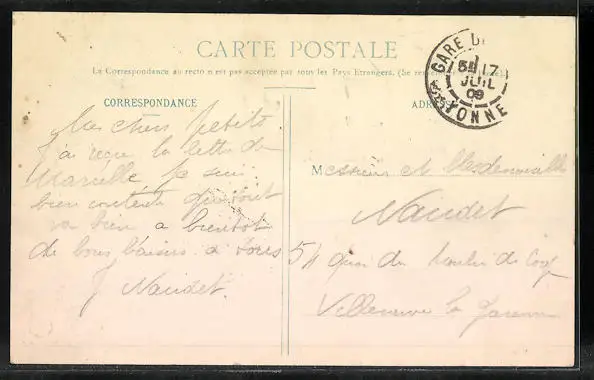 CARTE POSTALE
La Correspondance au recto n'est pas acceptée par tous les Pays Étrangers. (Se
CORRESPONDANCE
Mes chers petits
j'ai reçu la lettre de
Marcelle je suis
bien contente que tout
va bien a bientot
de bons baisers a tous
J Naudet.
GARE D
5H 17
JUIL
09
YONNE
Messieurs et Mesdemoiselle
Naudet
54 quai du Moulin de Cage
Villeneuve la Garenne